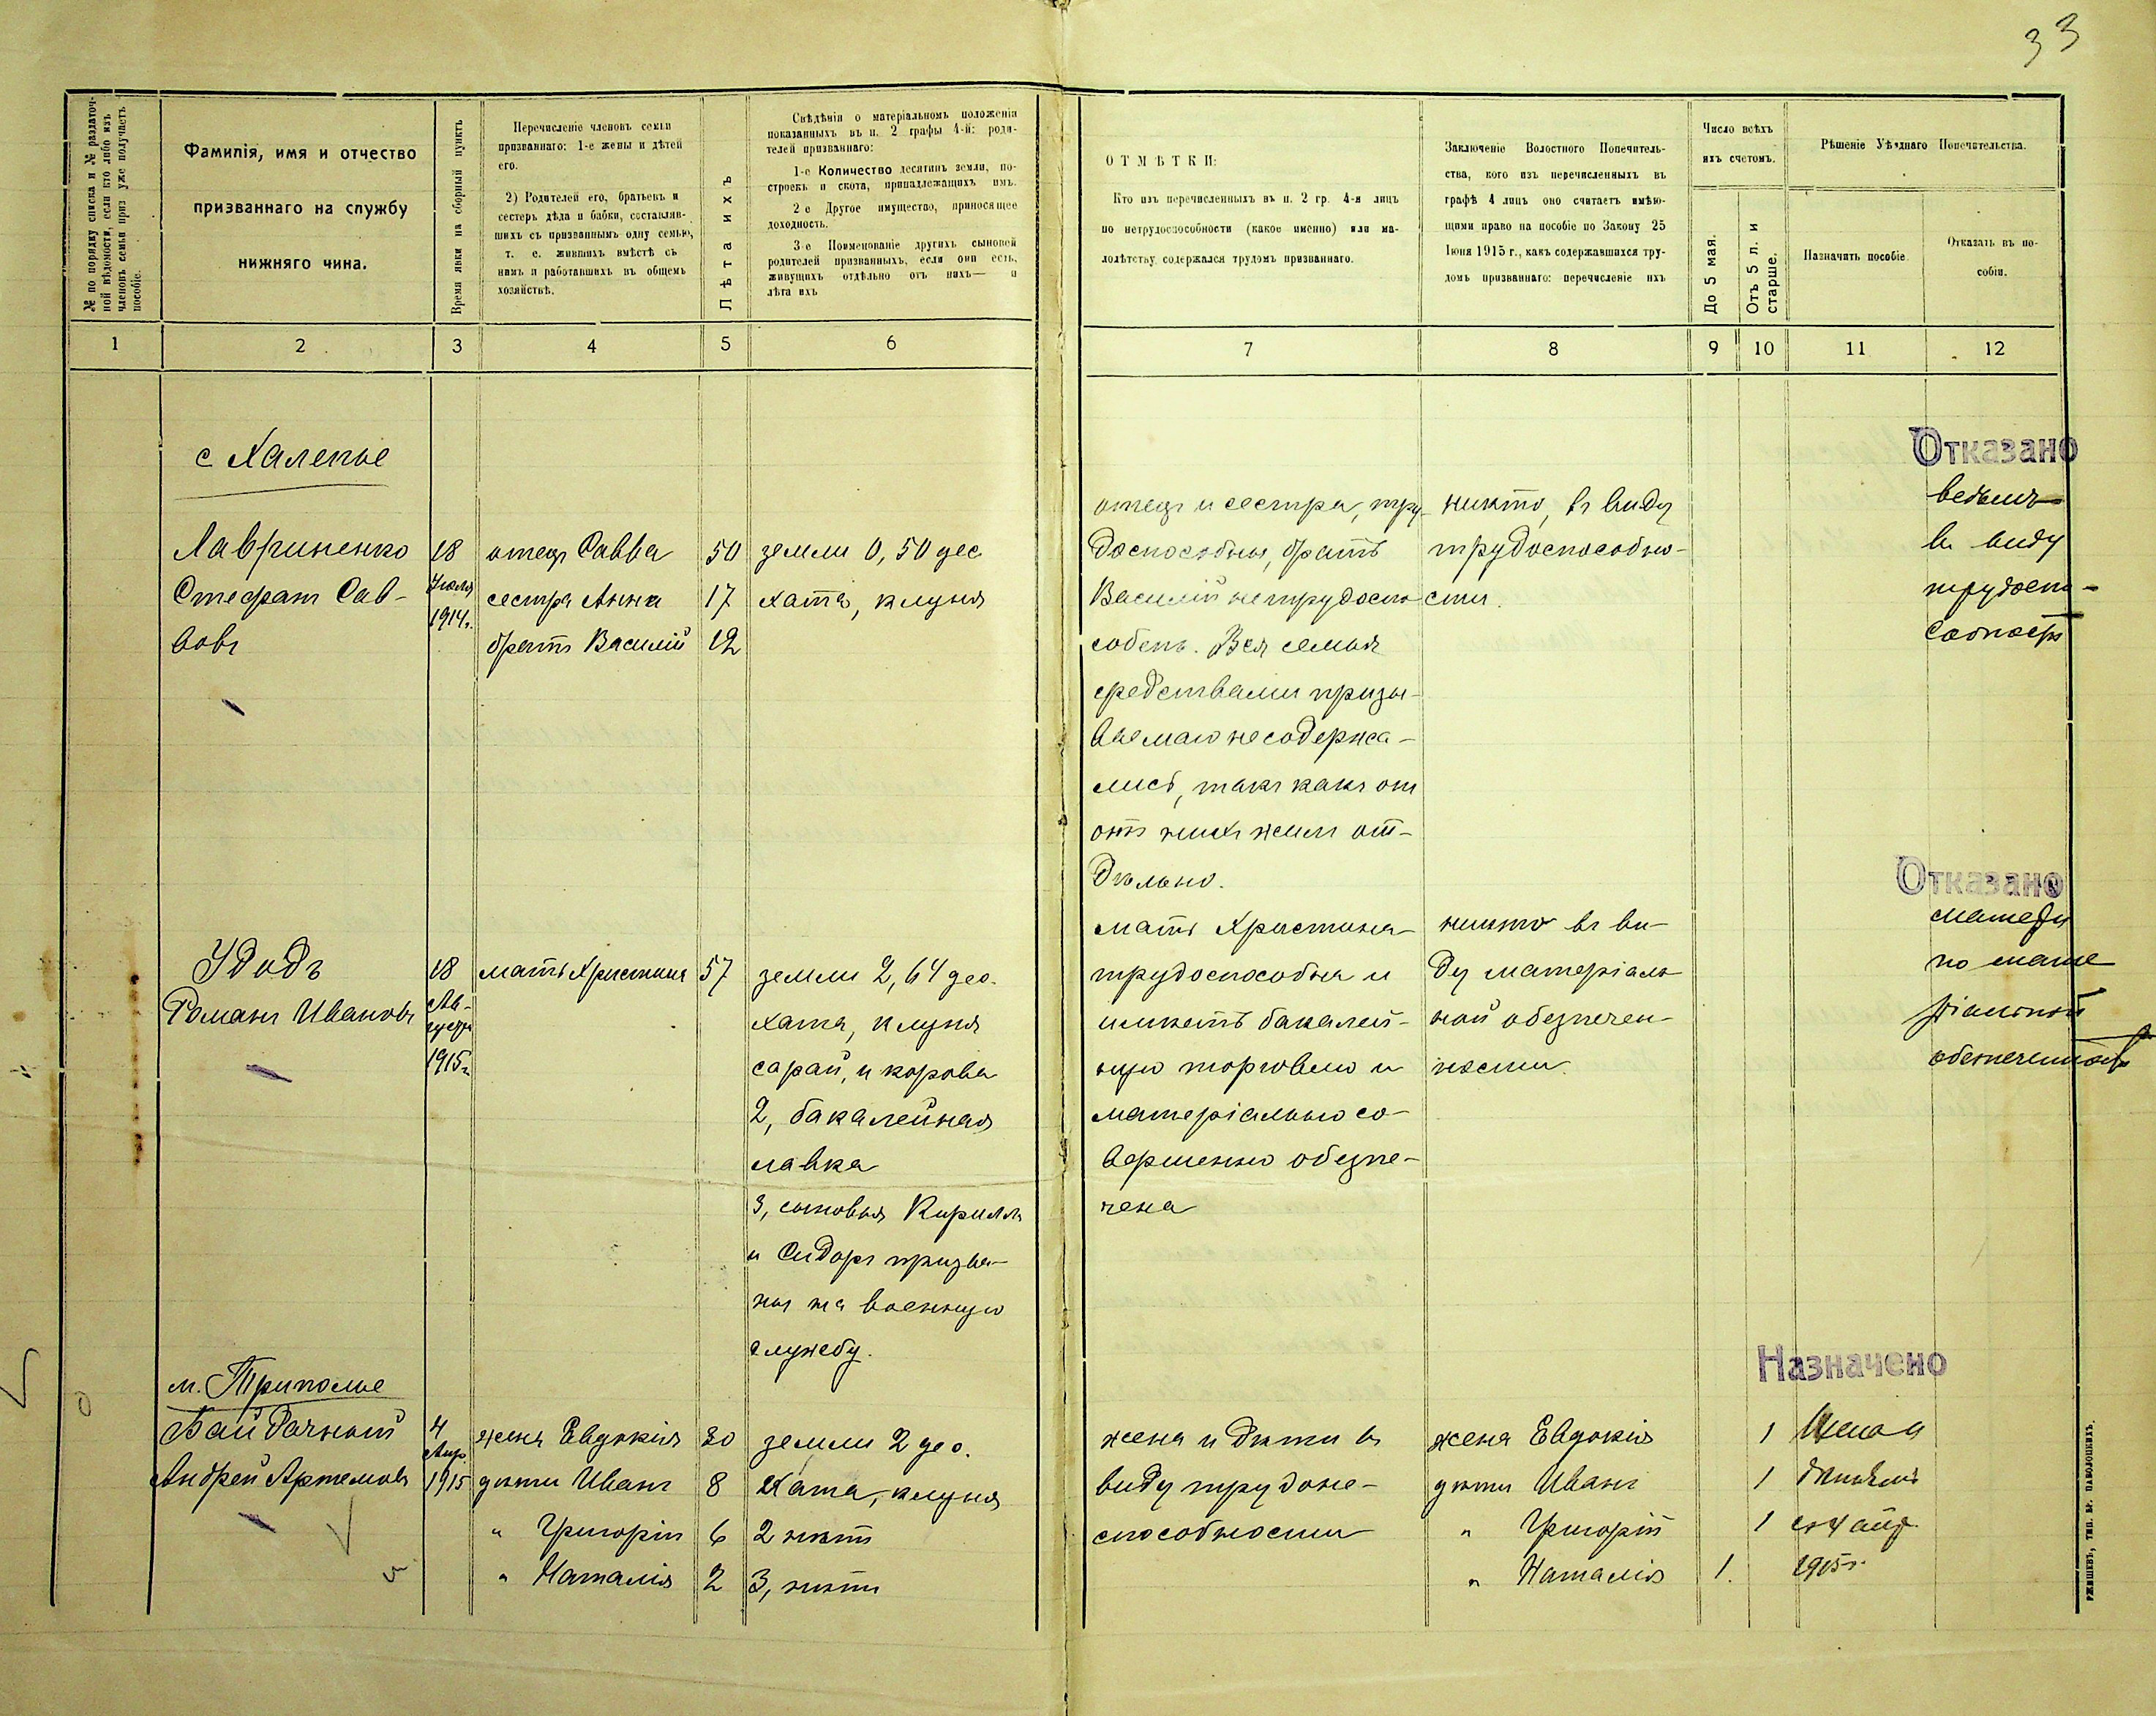 33
№ по порядку списка и № раздаточ-
ной вѣдомости, если кто либо изъ
членовъ семьи приз уже получаетъ
пособіе.
Фамилія, имя и отчество
призваннаго на службу
нижняго чина.
Время явки на сборный пунктъ
Перечисленіе членовъ семьи
призваннаго: 1-е жены и дѣтей
его.
2) Родителей его, братьевъ и
сестеръ дѣда и бабки, составляв-
шихъ съ призваннымъ одну семью,
т. е. жившихъ вмѣстѣ съ
нимъ и работавшихъ въ общемъ
хозяйствѣ.
Лѣта ихъ
Свѣдѣнія о матеріальномъ положеніи
показанныхъ въ п. 2 графы 4-й: роди-
телей призваннаго:
1-е Количество десятинъ земли, по-
строекъ и скота, принадлежащихъ имъ.
2 е Другое имущество, приносящее
доходность.
3 е Поименованіе другихъ сыновей
родителей призванныхъ, если они есть,
живущихъ отдѣльно отъ нихъ— и
лѣта ихъ
ОТМѢТКИ:
Кто изъ перечисленныхъ въ п. 2 гр. 4-й лицъ
по нетрудоспособности (какое именно) или ма-
лолѣтству содержался трудомъ призваннаго.
Заключеніе Волостного Попечитель-
ства, кого изъ перечисленныхъ въ
графѣ 4 лицъ оно считаетъ имѣю-
щими право на пособіе по Закону 25
Іюня 1915 г., какъ содержавшихся тру-
домъ призваннаго: перечисленіе ихъ
Число всѣхъ
ихъ счетомъ.
До 5 мая.
Отъ 5 л. и
старше.
Рѣшеніе Уѣзднаго Попечительства.
Назначить пособіе
Отказать въ по-
собіи.
1 2 3 4 5 6 7 8 9 10 11 12
с Халепье
Лавриненко
Стефанъ Сав-
вовъ
18
Іюля
1914г.
отецъ Савва 50
сестра Анна 17
братъ Василій 12
земли 0,50 дес
хата, клуня
отецъ и сестра, тру-
доспособны, братъ
Василій нетрудоспо
собенъ. Вся семья
средствами призы-
ваемаго не содержа-
лись, такъ какъ он
отъ нихъ жилъ от-
дѣльно.
никто, въ виду
трудоспособно-
сти.
Отказано
всѣмъ
въ виду
трудосп-
собности
Удодъ
Романъ Ивановъ
18
Ав-
густа
1915г.
мать Христина 57
земли 2,64 дес.
хата, клуня
сарай, и корова
2, бакалейная
лавка
3, сыновья Кириллъ
и Сидоръ призва-
ны на военную
службу.
мать Христина
трудоспособна и
имѣетъ бакалей-
ную торговлю и
матеріально со-
вершенно обезпе-
чена
никто въ ви-
ду матеріаль
ной обезпечен-
ности.
Отказано
матери
по мате
ріальной
обезпеченности
м. Триполье
Байдачный
Андрей Артемовъ
4
Апр.
1915
жена Евдокія 30
дѣти Иванъ 8
" Григорій 6
" Наталія 2
земли 2 дес.
Хата, клуня
2 нѣтъ
3, нѣтъ
жена и дѣти въ
виду трудоне-
способности
жена Евдокія 1
дѣти Иванъ 1
" Григорій 1
" Наталія 1.
Назначено
Женѣ и
дѣтямъ
съ 4 апр.
1915г.
РЖИЩЕВЪ, ТИП. БР. ПАВОЛОЦКИХЪ.